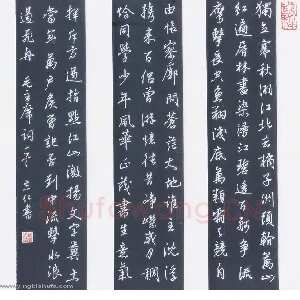 獨立寒秋湘江北去橘子洲頭看萬山
紅遍層林盡染漫江碧透百舸爭流
鷹擊長空魚翔淺底萬類霜天競自
由悵寥廓問蒼茫大地誰主沈浮
攜來百侶曾遊憶往昔崢嶸歲月稠
恰同學少年風華正茂書生意氣
揮斥方遒指點江山激揚文字糞土
當年萬戶侯曾記否到中流擊水浪
遏飛舟 毛主席詞